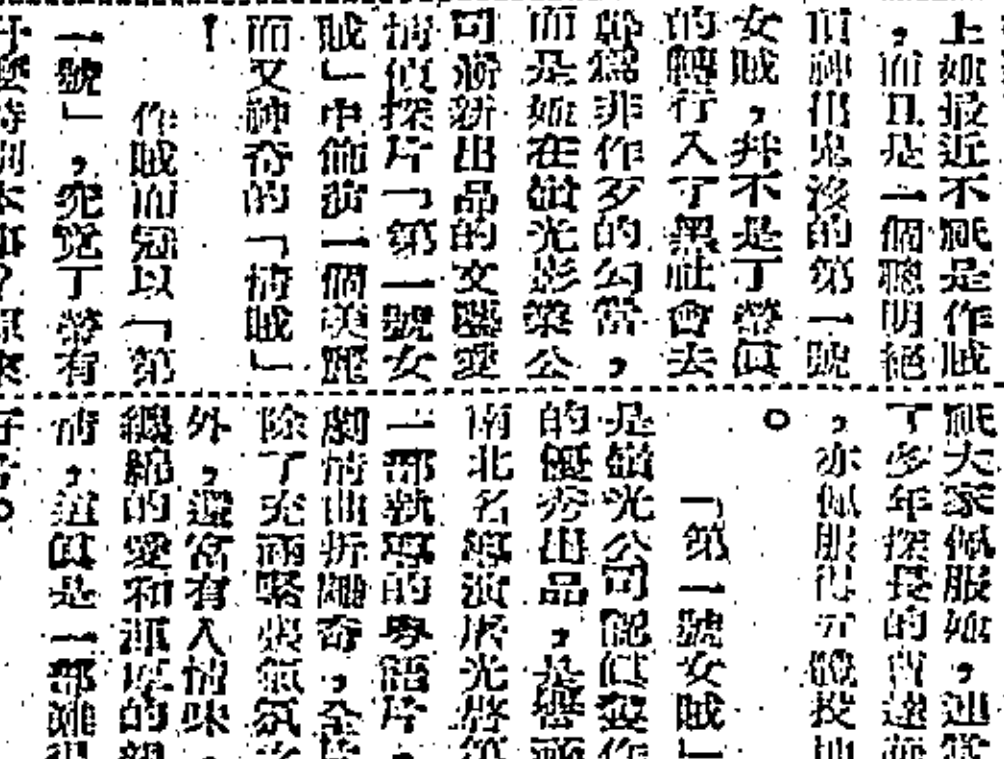 上她最近不祇是作賊
，而且是一個聰明絕
頂神出鬼沒的第一號
女賊，并不是丁瑩眞
的轉行入了黑社會去
幹爲非作歹的勾當，
而是她在嶺光影業公
司新出品的文藝愛
情偵探片「第一號女
賊」中飾演一個美麗
而又神奇的「情賊」
！
作賊而冠以「第
一號」，究竟丁瑩有
什麼特別本事？原來
祇大家佩服她，連當
了多年探長的曹達
，亦佩服得五體投地
。
「第一號女賊」
是嶺光公司製作
的優秀出品，是譽
南北名導演唐光啓
一部執導的粵語片，
劇情曲折離奇，全
除了充滿緊張氣氛
外，還富有人情味，
纏綿的愛和渾厚的親
情，這眞是一部難得
好